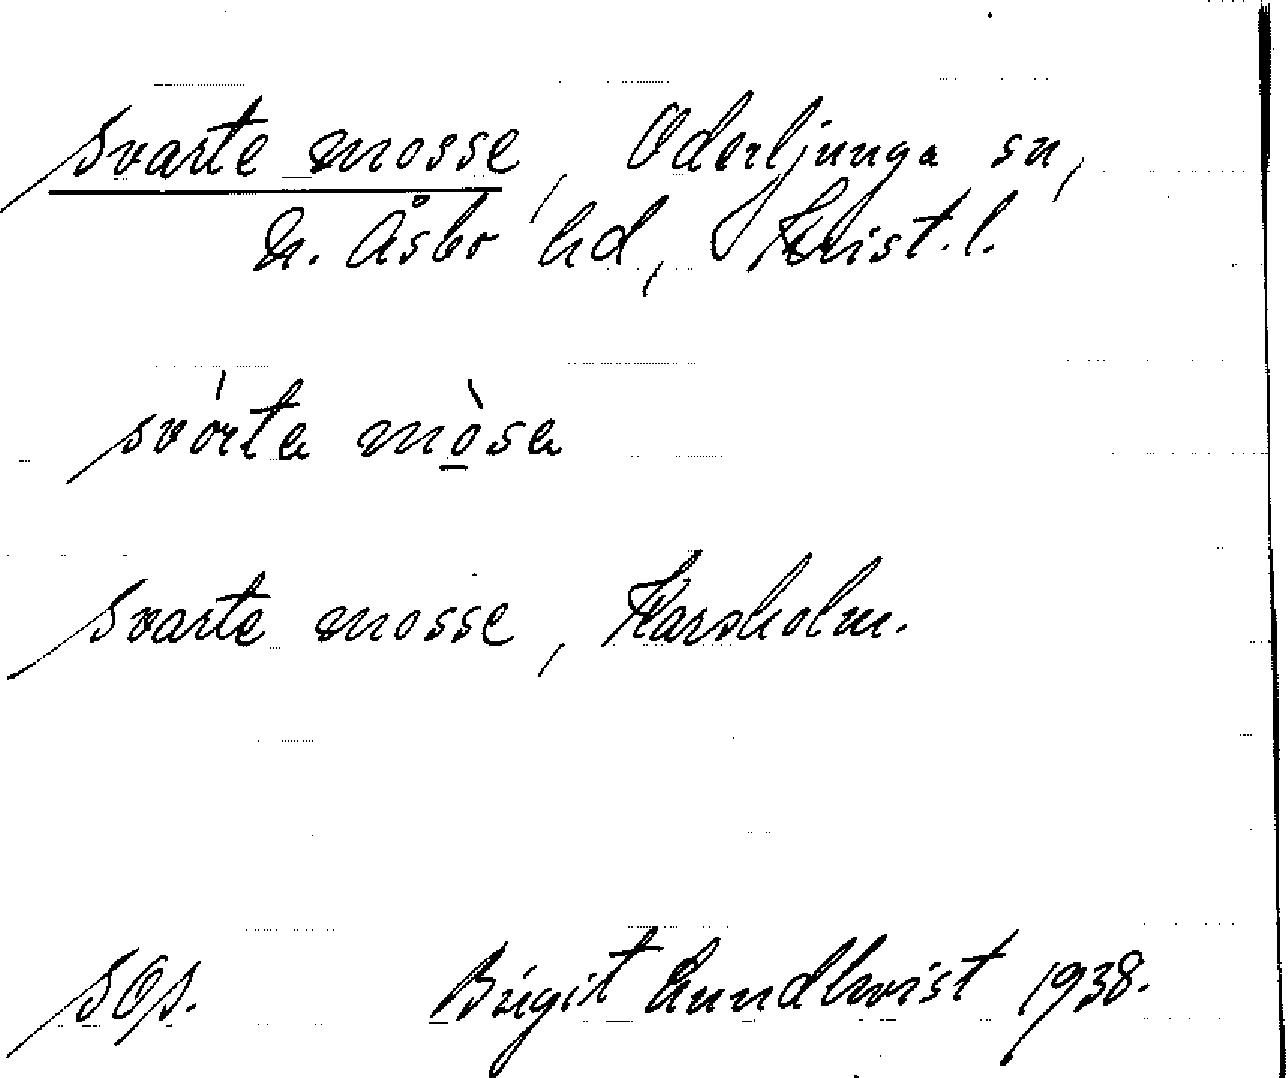 Svarte mosse, Oderljunga sn,
n. Åsbo hd, Krist. l.
svórta mò̱sa
Svarte mosse, Karsholm.
SOJ. Birgit Lundkvist 1938.